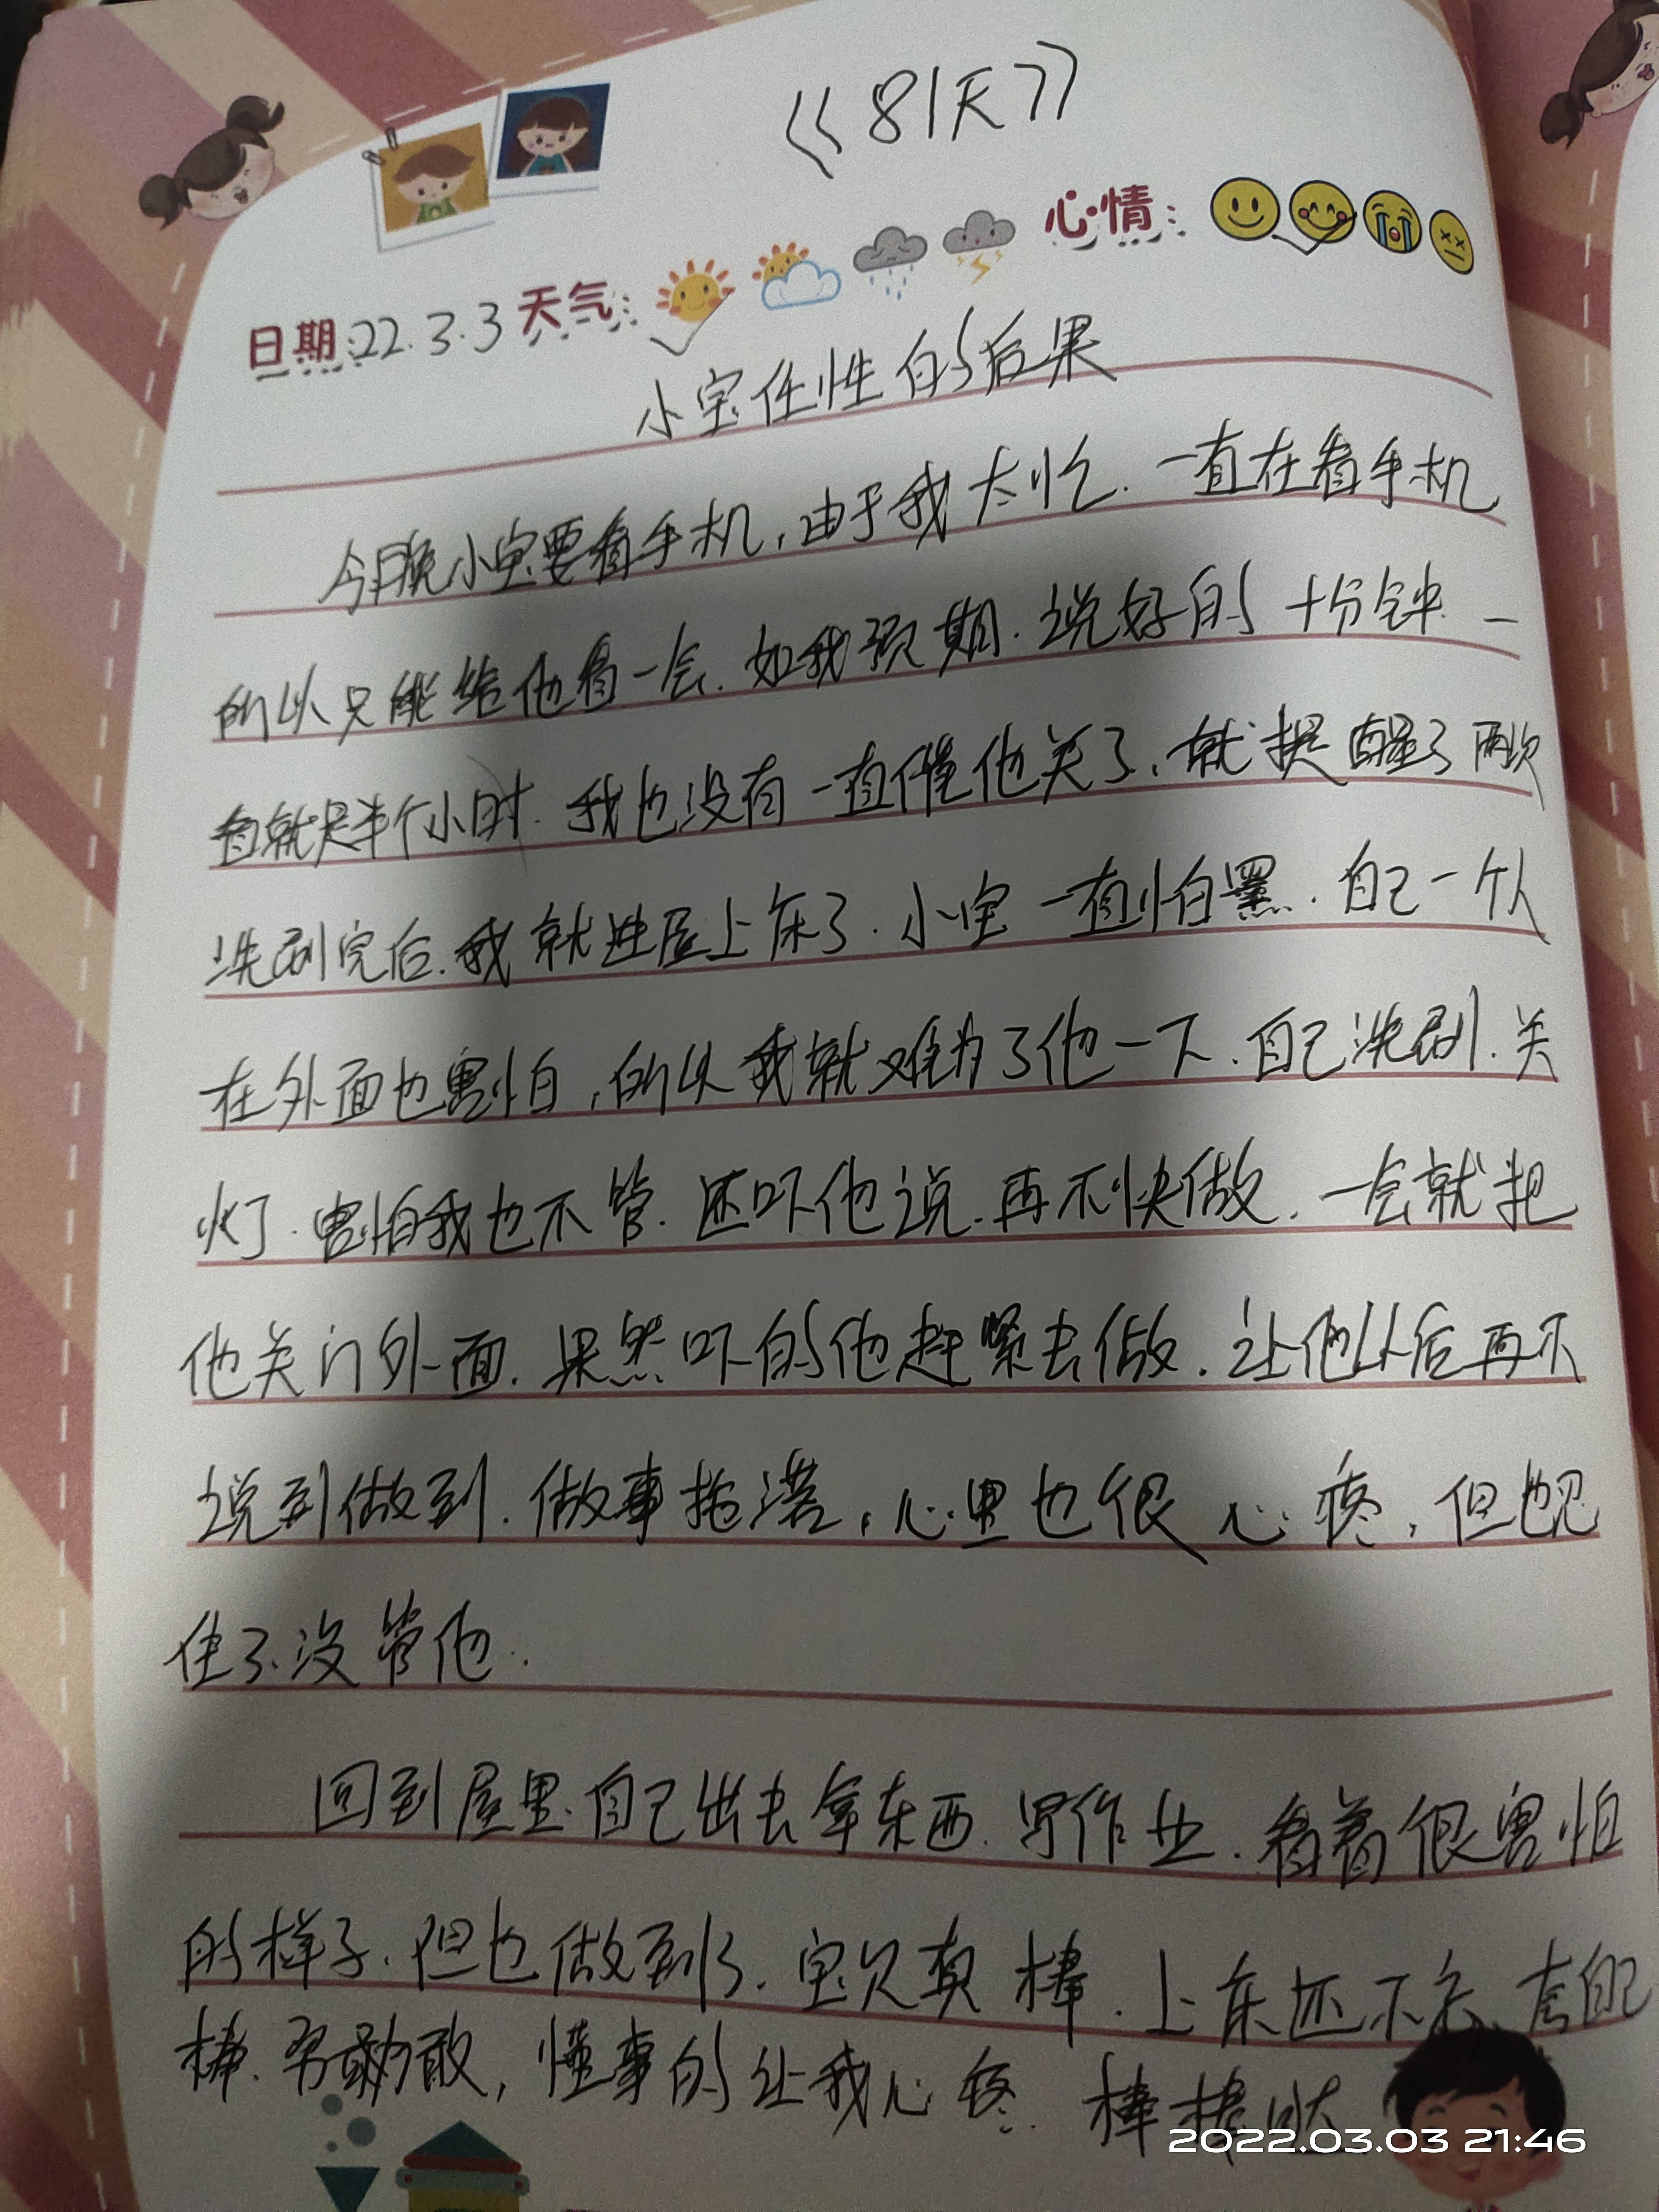 《81天》
心情：
日期：22.3.3 天气：
小宝任性的后果
今晚小宝要看手机，由于我太忙.一直在看手机
所以只能给他看一会.如我预期.说好的十分钟.一
看就是半个小时.我也没有一直催他关了，就提醒了两次
洗刷完后.我就进屋上床了.小宝一直怕黑.自己一个人
在外面也害怕，所以我就难为了他一下.自己洗刷.关
灯.害怕我也不管.还吓他说.再不快做.一会就把
他关门外面.果然吓的他赶紧去做.让他以后再不
说到做到.做事拖湛，心里也很心疼，但也忍
住了.没管他.
回到屋里.自己出去拿东西.写作业.看着很害怕
的样子.但也做到了.宝贝真棒.上床还不忘夸自己
棒.勇敢，懂事的让我心疼.棒棒哒
2022.03.03 21:46